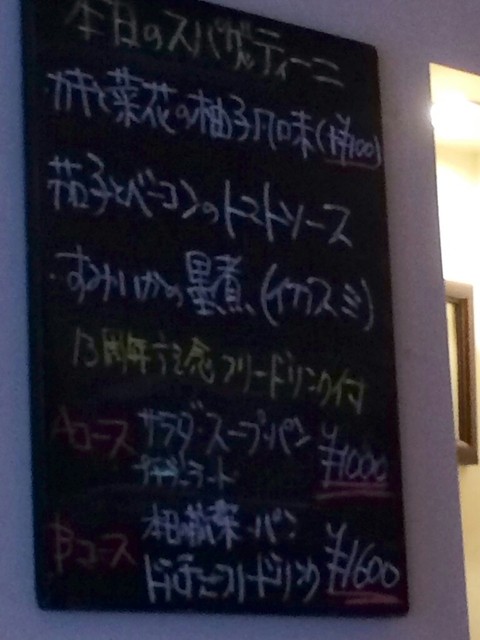 本日のスパゲッティーニ
と菜花の柚子風味(+¥100)
茄子とベーコンのトマトソース
・すみいかの墨煮(イカスミ)
13周年記念フリードリンク付
Aコース サラダ・スープ・パン ¥1000
Bコース 前菜・パン ¥1600
フリードリンク